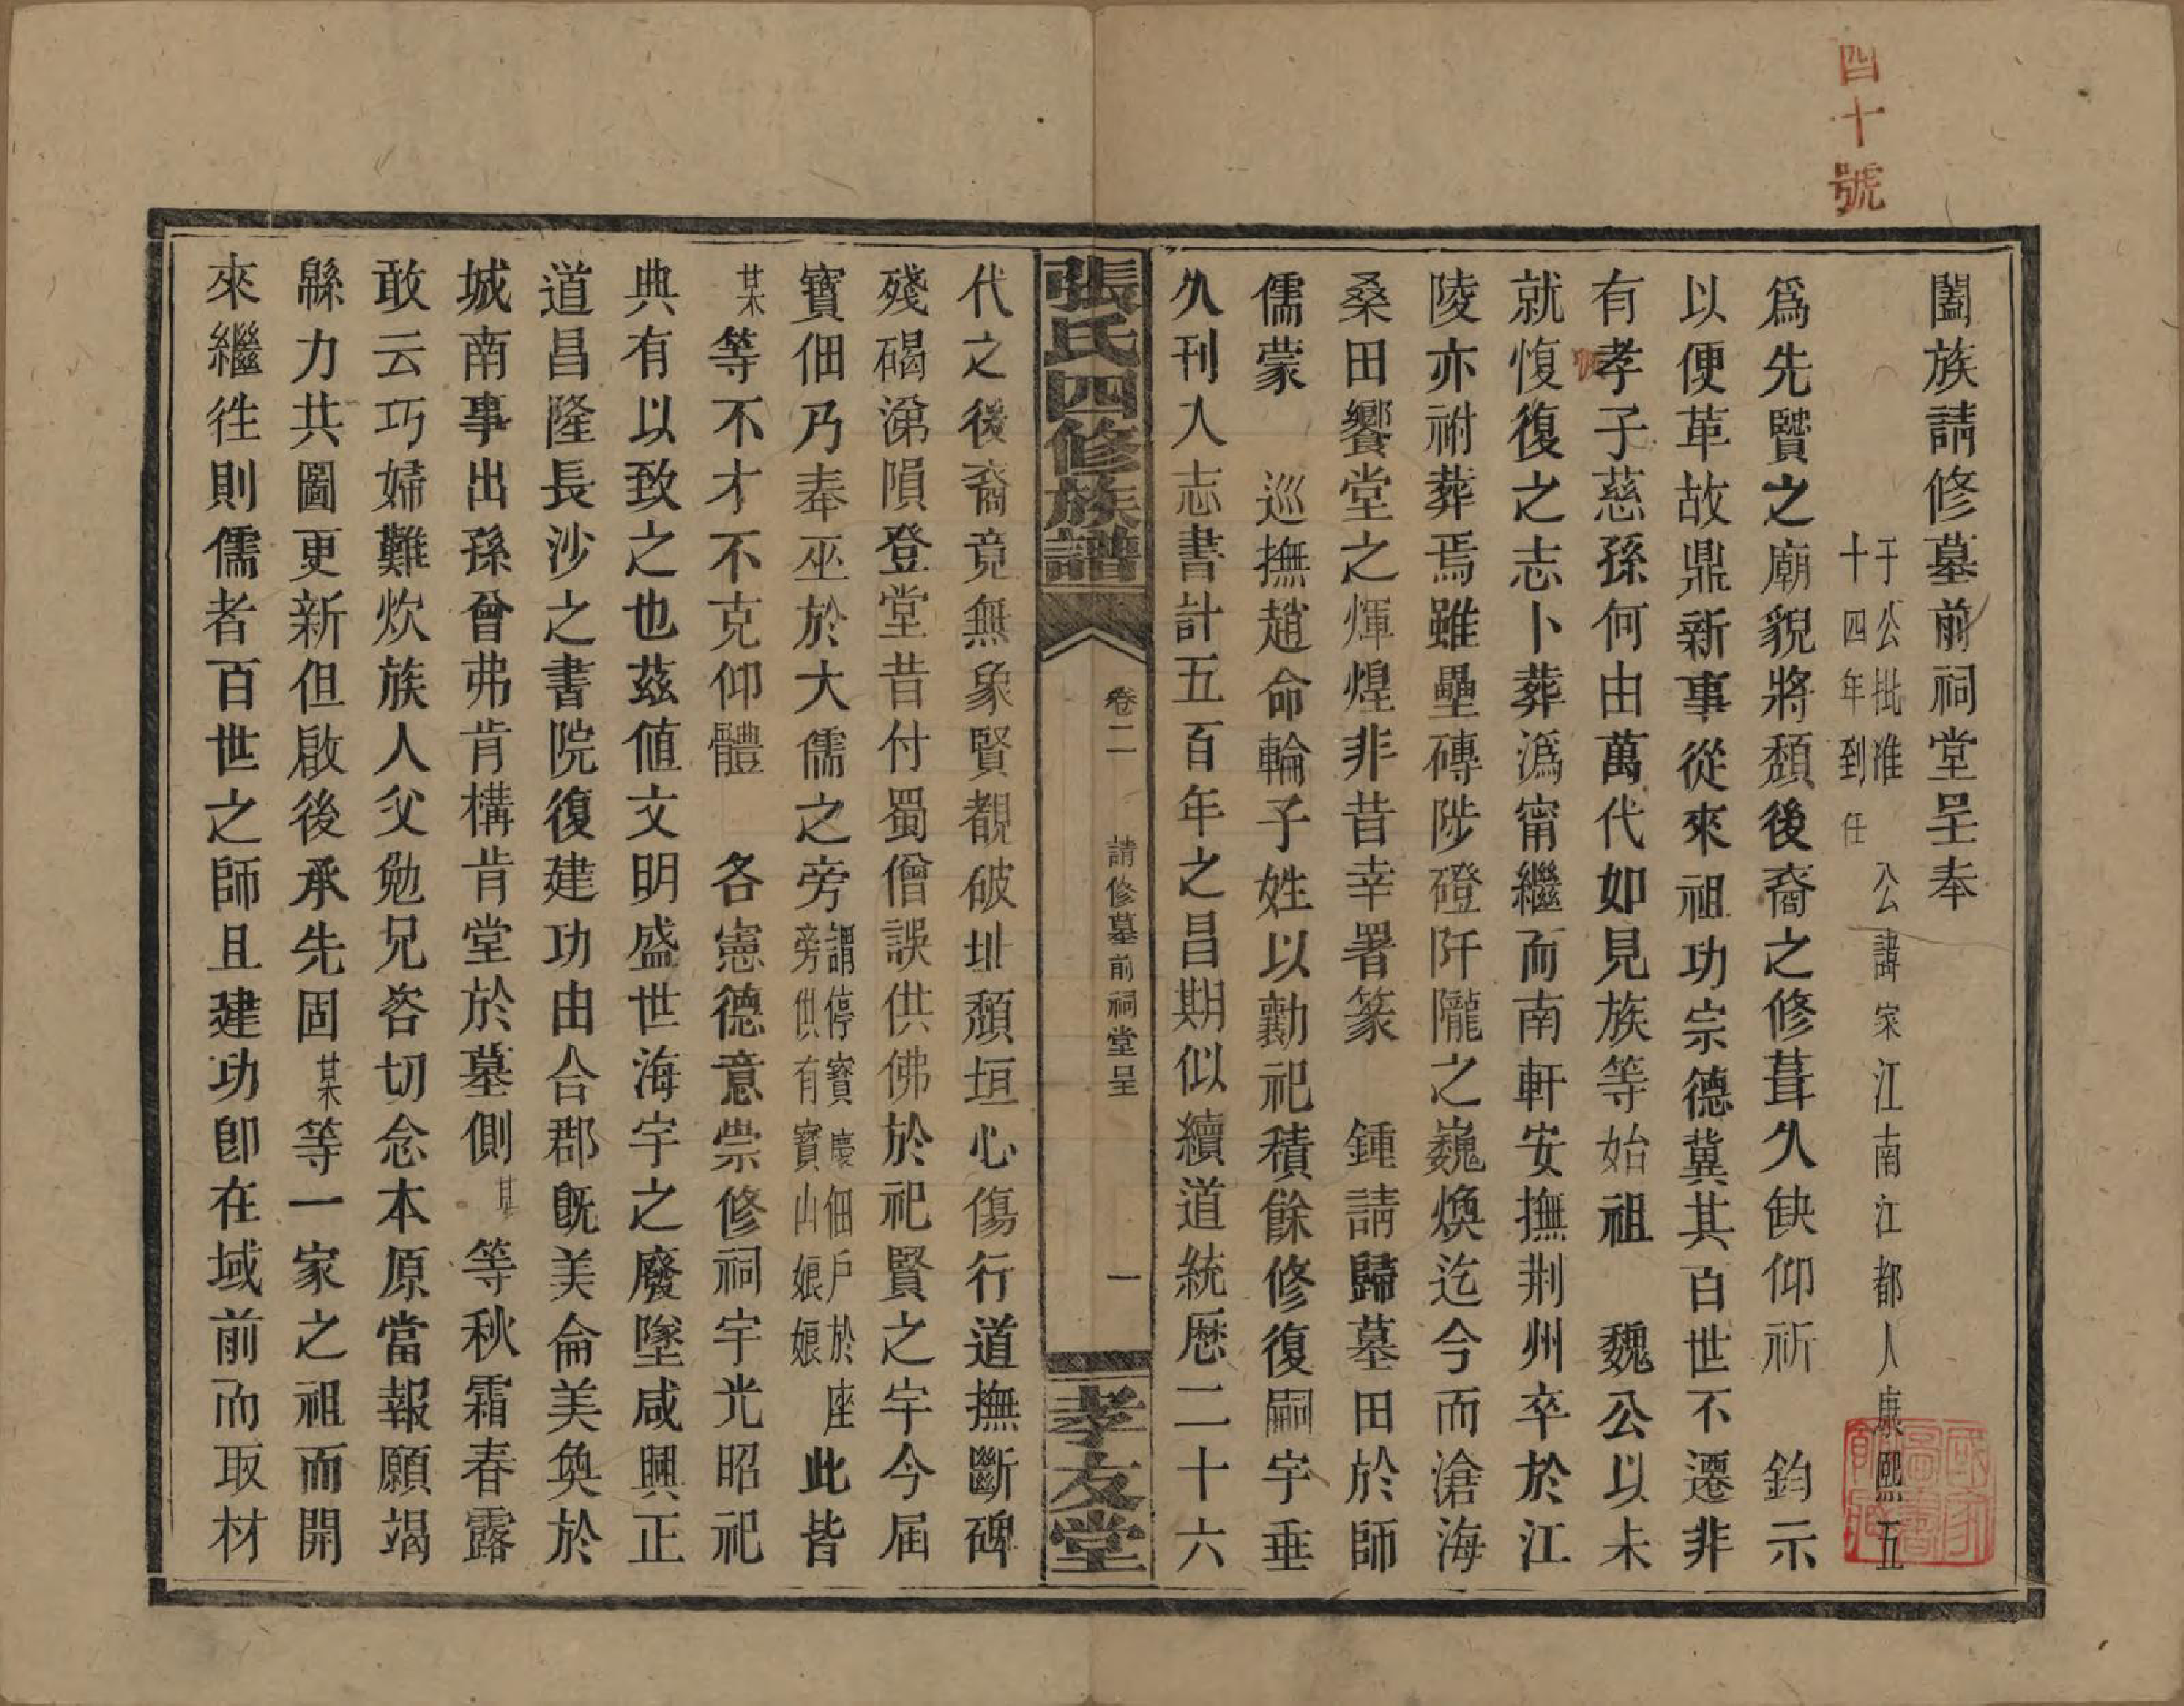 四十號
闔族請修墓前祠堂呈奉
于公批准　公諱家江南江都人康熙五
十四年到任
爲先賢之廟貌將頽後裔之修葺久缺仰祈　鈞示
以便革故鼎新事從來祖功宗德冀其百世不遷非
有孝子慈孫何由萬代如見族等始祖　魏公以未
就愎復之志卜葬溈甯繼而南軒安撫荆州卒於江
陵亦祔葬焉雖壘磚陟磴阡隴之巍煥迄今而滄海
桑田饗堂之煇煌非昔幸署篆　鍾請歸墓田於師
儒蒙　巡撫趙命輪子姓以勷祀積餘修復嗣宇垂
久刊入志書計五百年之昌期似續道統歷二十六
張氏四修族譜
卷二
請修墓前祠堂呈
一
孝友堂
代之後裔竟無象賢覩破址頽垣心傷行道撫斷碑
殘碣涕隕登堂昔付蜀僧誤供佛於祀賢之宇今屆
寶佃乃奉巫於大儒之旁謂停寶慶佃戶於座
旁供有寶山娘娘此皆
某等不才不克仰體　各憲德意崇修祠宇光昭祀
典有以致之也茲値文明盛世海宇之廢墜咸興正
道昌隆長沙之書院復建功由合郡旣美侖美奐於
城南事出孫曾弗肯構肯堂於墓側某等秋霜春露
敢云巧婦難炊族人父勉兄咨切念本原當報願竭
緜力共圖更新但啟後承先固某等一家之祖而開
來繼徃則儒者百世之師且建功卽在域前而取材